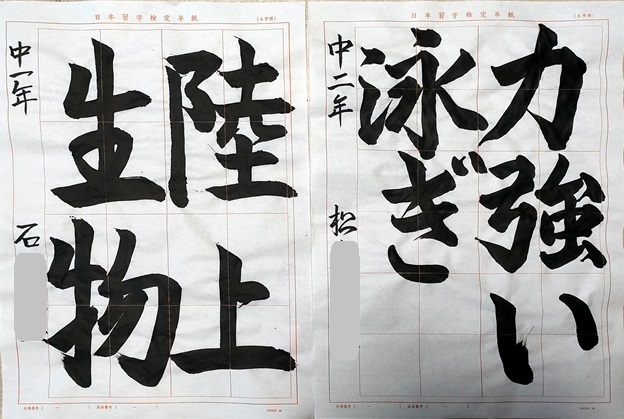 日本習字検定半紙
陸上
生物
中一年 石
日本習字検定半紙
力強い
泳ぎ
中二年 松